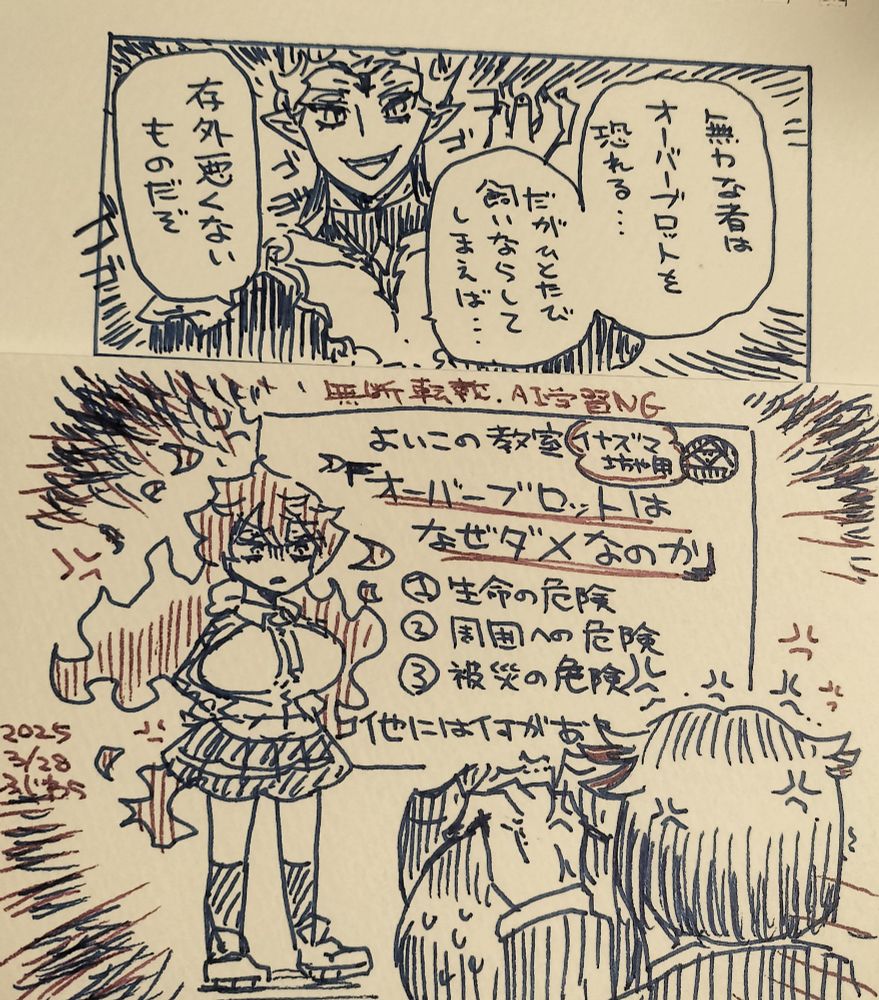 無力な者は
オーバーブロットを
恐れる…
だがひとたび
飼いならして
しまえば…
存外悪くない
ものだぞ
ゴゴゴ
無断転載.AI学習NG
よいこの教室
イナズマ
坊ちゃ用
オーバーブロットは
なぜダメなのか
① 生命の危険
② 周囲への危険
③ 被災の危険
他には何があ
2025
3/28
ふじわら